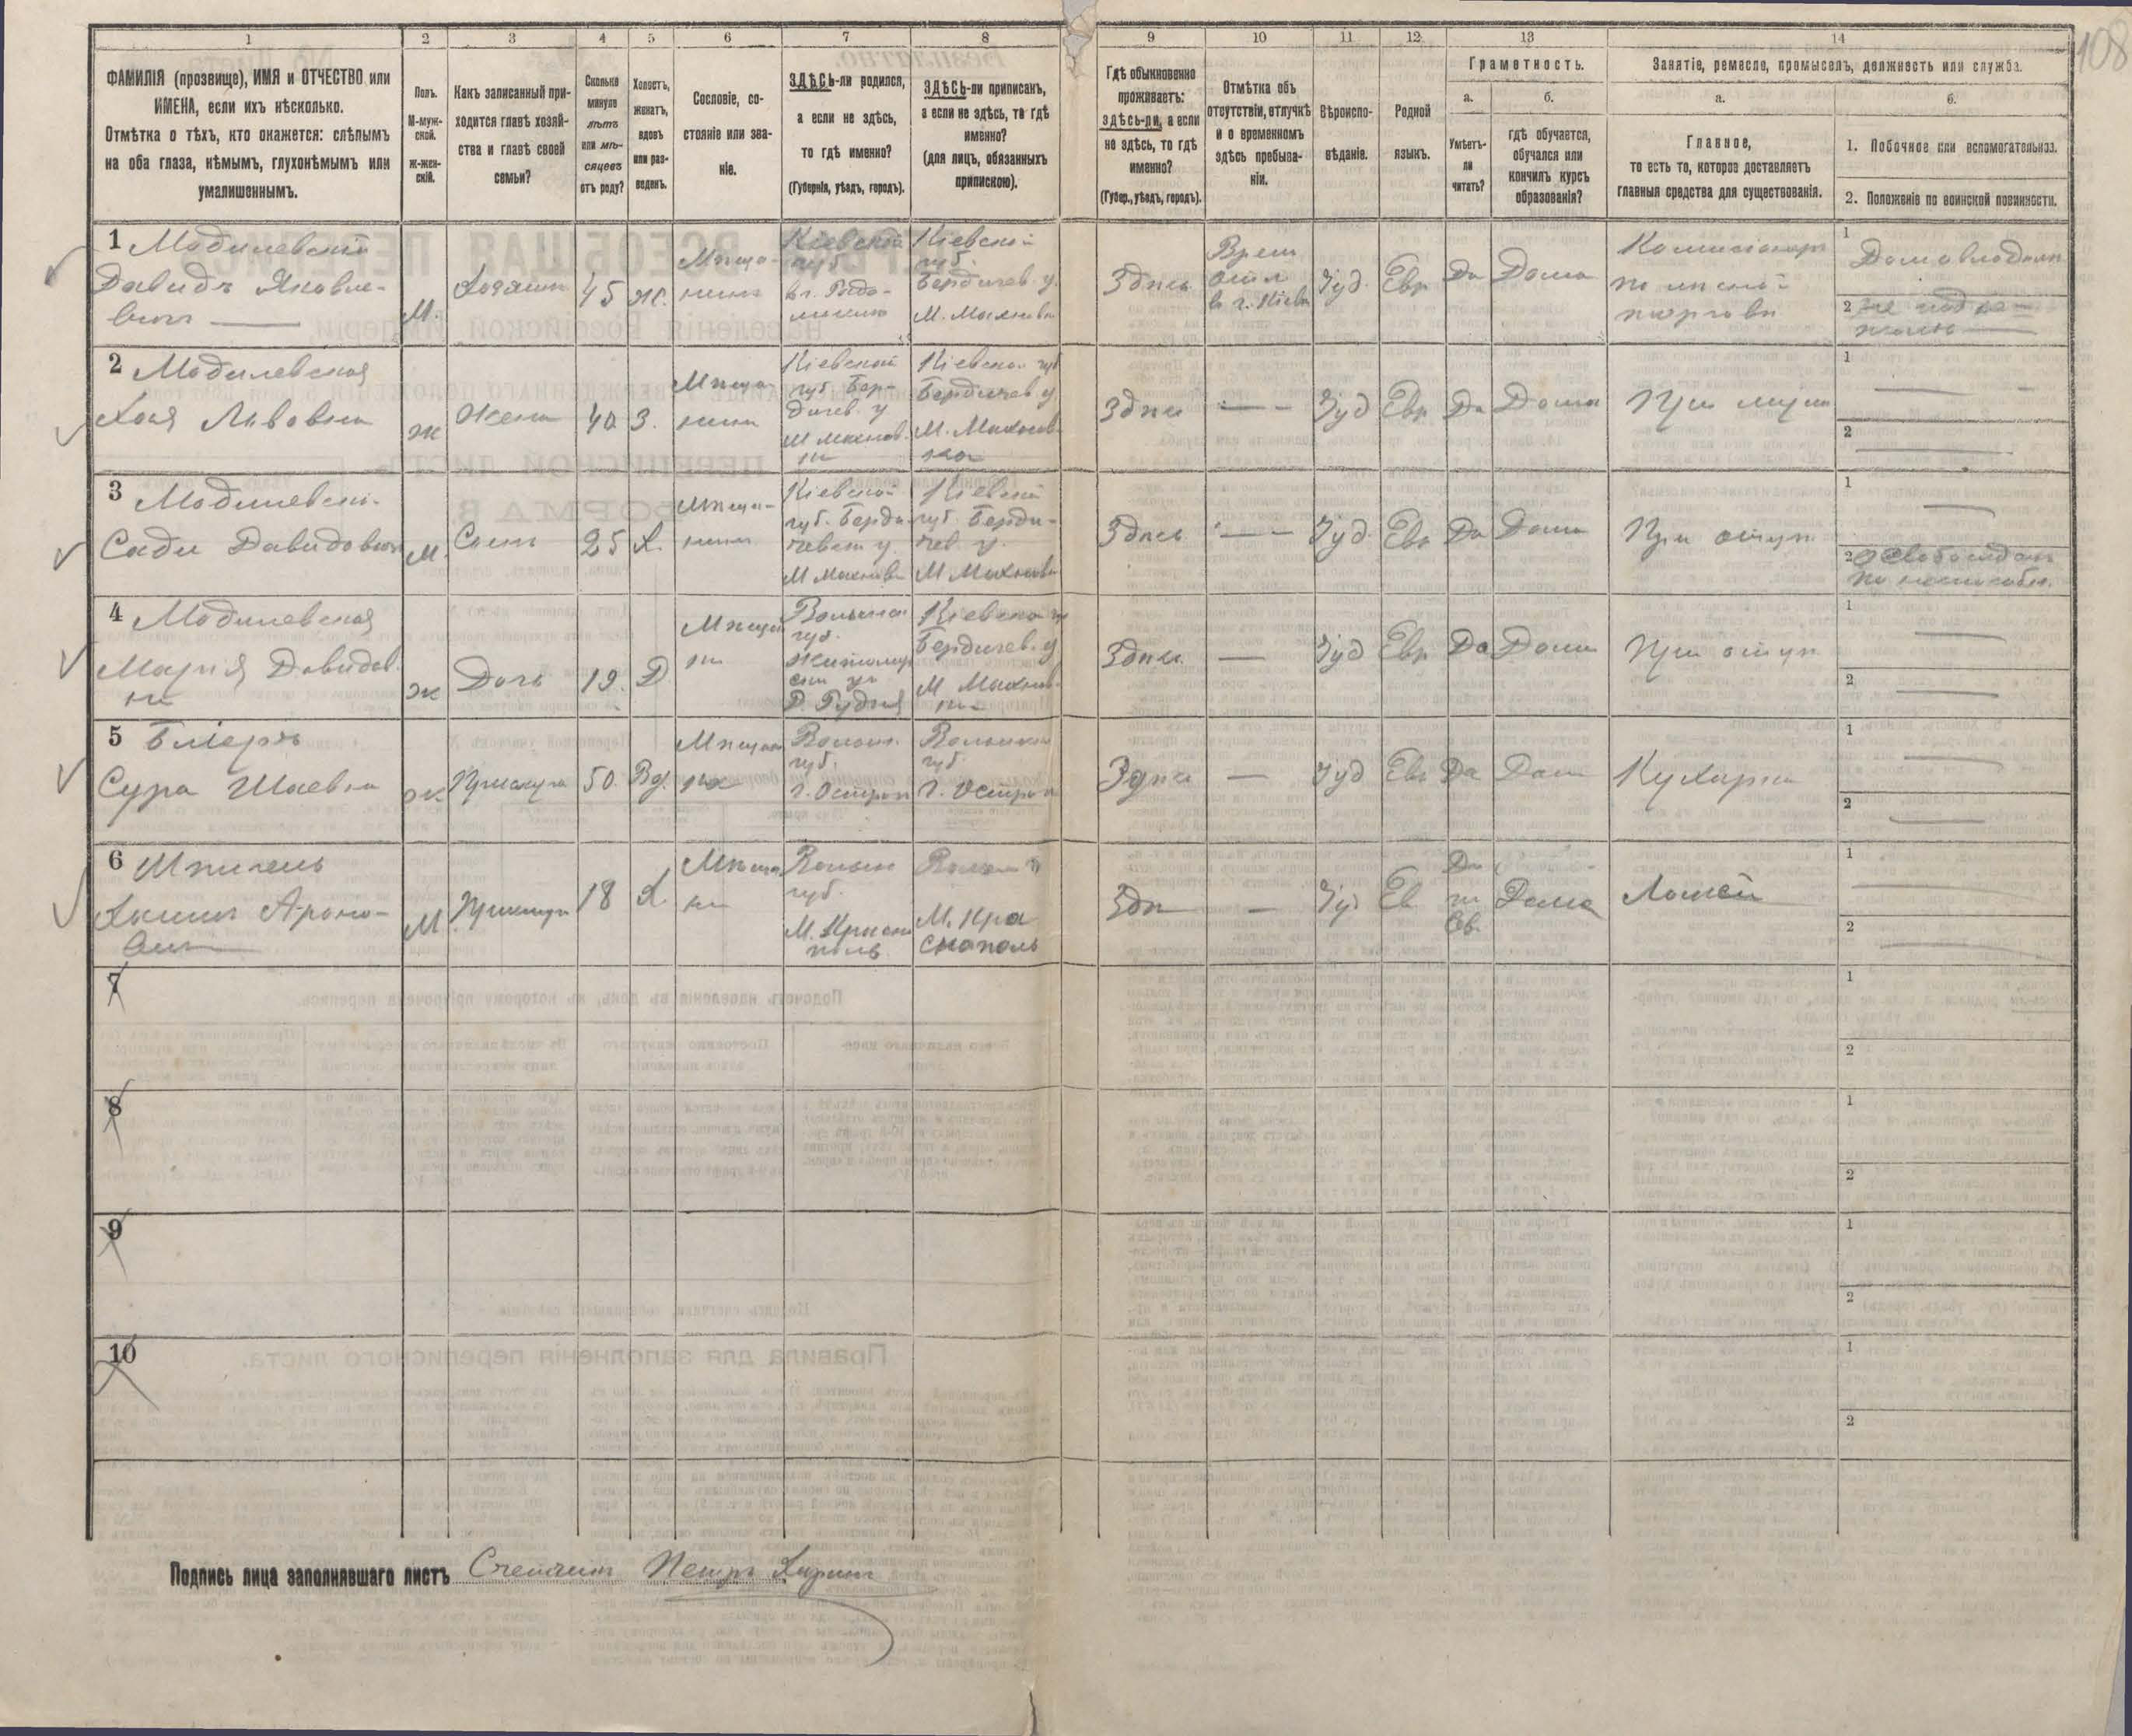 108
1
2
3
4
5
6
7
8
9
10
11
12
13
14
ФАМИЛІЯ (прозвище), ИМЯ и ОТЧЕСТВО или
ИМЕНА, если ихъ нѣсколько.
Отмѣтка о тѣхъ, кто окажется: слѣпымъ
на оба глаза, нѣмымъ, глухонѣмымъ или
умалишеннымъ.
Полъ.
М-муж-
ской.
Ж-жен-
скій.
Какъ записанный при-
ходится главѣ хозяй-
ства и главѣ своей
семьи?
Сколько
минуло
лѣтъ
или мѣ-
сяцевъ
отъ роду?
Холостъ,
женатъ,
вдовъ
или раз-
веденъ.
Сословіе, со-
стояніе или зва-
ніе.
ЗДѢСЬ-ли родился,
а если не здѣсь,
то гдѣ именно?
(Губернія, уѣздъ, городъ).
ЗДѢСЬ-ли приписанъ,
а если не здѣсь, то гдѣ
именно?
(для лицъ, обязанныхъ
припискою).
Гдѣ обыкновенно
проживаетъ:
здѣсь-ли, а если
не здѣсь, то гдѣ
именно?
(Губер., уѣздъ, городъ).
Отмѣтка объ
отсутствіи, отлучкѣ
и о временномъ
здѣсь пребыва-
ніи.
Вѣроиспо-
вѣданіе.
Родной
языкъ.
Грамотность.
а.
Умѣетъ-
ли
читать?
б.
гдѣ обучается,
обучался или
кончилъ курсъ
образованія?
Занятіе, ремесло, промыселъ, должность или служба.
а.
Главное,
то есть то, которое доставляетъ
главныя средства для существованія.
б.
1. Побочное или вспомогательное.
2. Положеніе по воинской повинности.
1 Модилевскій
Давидъ Яковле-
вичъ
М.
Хозяинъ
45
Ж.
Мѣща-
нинъ
Кіевской
губ.
Кіевской
губ.
Бердичев. у.
М. Махновка
Здѣсь
Врем
в г. Кіевѣ
Іуд.
Евр
Да
Дома
по
торговлѣ
1
Домовладѣл
2 не подле-
житъ
2 Модилевская
Хая Львовна
Ж
Жена
40
З.
Мѣща-
нина
Кіевской
губ. Бер-
дичев. у
М. Махнов-
ка
Кіевской губ
Бердичев. у
М. Махнов-
ка
Здѣсь
Іуд
Евр
Да
Дома
При мужѣ
1
2
3 Модилевскі-
Сади Давидович
М.
Сынъ
25
Х.
Мѣща-
нинъ
Кіевской
губ. Берди-
чевск у.
М Махновка
Кіевской
губ. Берди-
чев. у.
М Махновка
Здѣсь
Іуд.
Евр
Да
Дома
При отцѣ
1
2 освобожденъ
по неспособн.
4 Модилевская
Марія Давидов-
на
Ж
Дочь
19.
Д
Мѣщан
ка
Волынск
губ.
Житомир
ск у
Д. Рудня
Кіевской гу
Бердичев. у
М Махнов-
ка
Здѣсь
Іуд
Евр
Да
Дома
При отцѣ
1
2
5
Сура Шаевна
Ж.
Прислуга
50.
Вд.
Мѣщан
ка
Волын.
губ.
г. Острогъ
Волынской
губ
г. Острогъ
Здѣсь
Іуд
Евр
Да
Дома
Кухарка
1
2
6
Ароно-
вичъ
М
Прислуга
18
Х
Мѣща
нин
Волын
губ.
М. Красно
поль
Волын
М. Кра
снополь
Здѣ
Іуд
Ев
Да
по
Ев.
Дома
Лакей
1
2
7
1
2
8
1
2
9
1
2
10
1
2
Подпись лица заполнявшаго листъ Счетчикъ Петръ